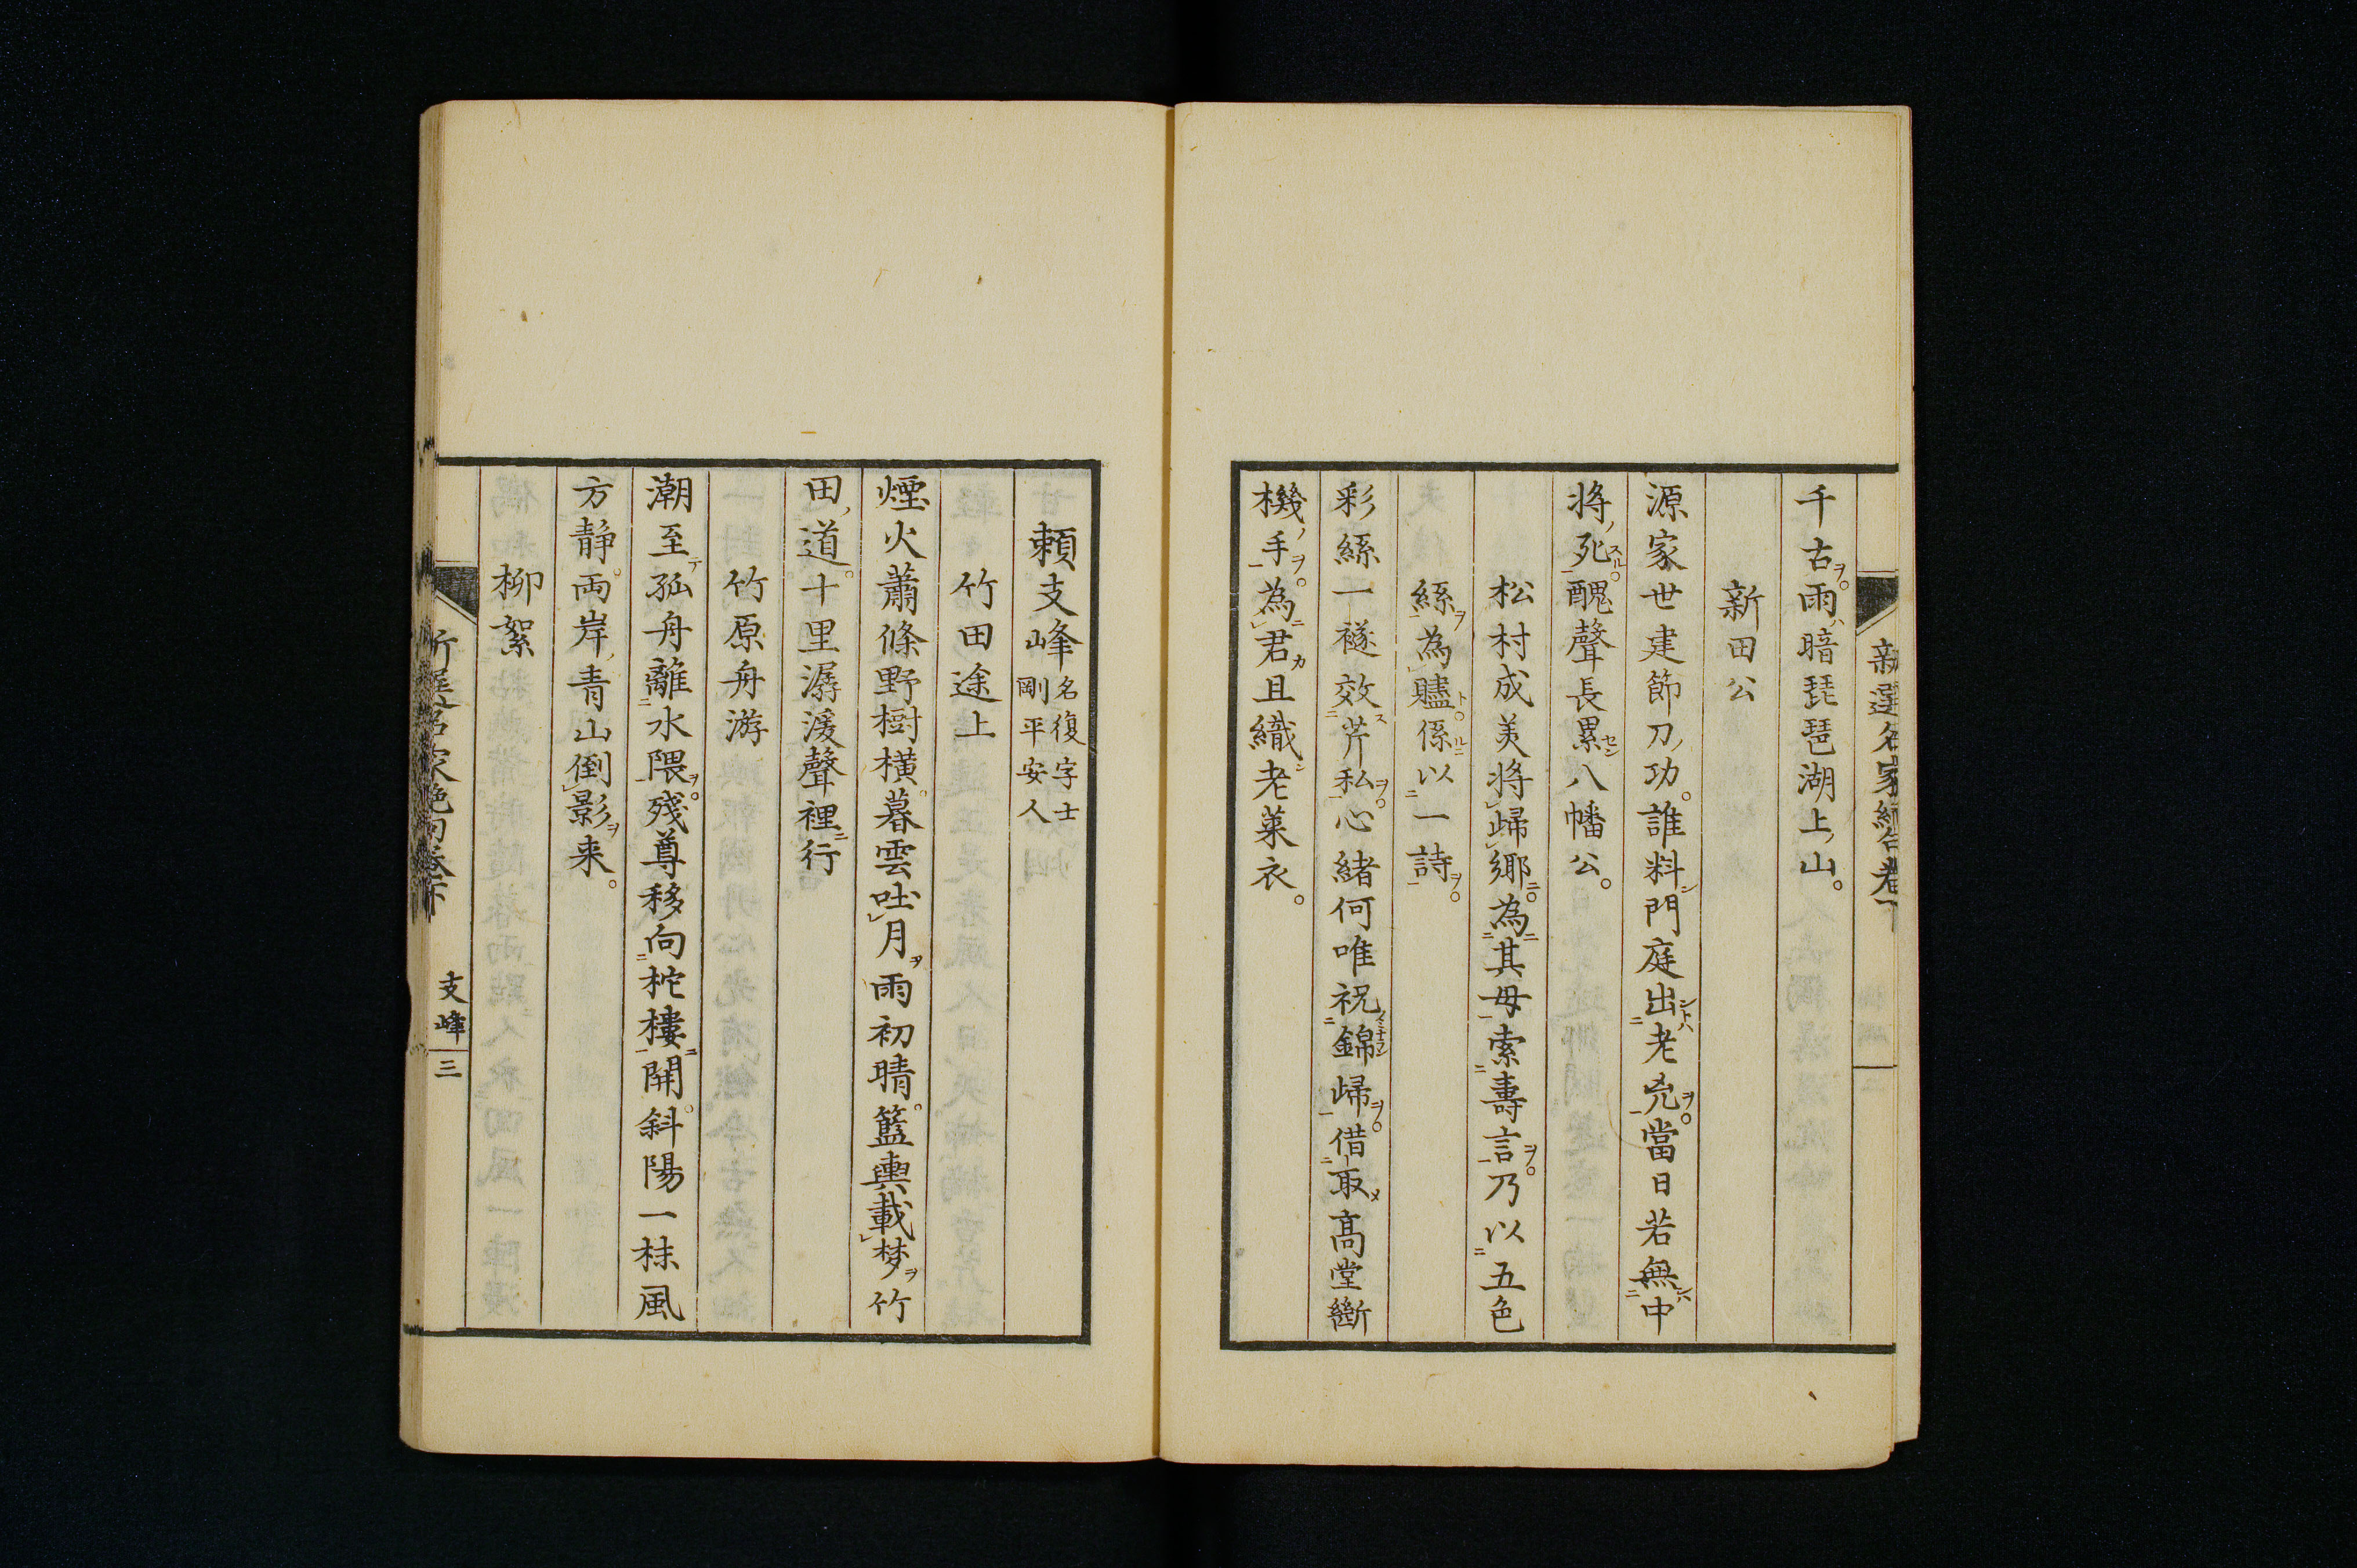 千古雨暗琵琶湖上山。
新田公
源家世建節刀功。誰料門庭出老兇。當日若無中
將死。醜聲長累八幡公。
松村成美將歸鄉。為其母索壽言。乃以五色
絲為贐。係以一詩。
彩絲一襚效芹私。心緒何唯祝錦歸。借取高堂斷
機手。為君且織老萊衣。
賴支峰 名復字士
剛平安人
竹田途上
煙火蕭條野樹橫。暮雲吐月雨初晴。籃輿載梦竹
田道。十里潺湲聲裡行
竹原舟游
潮至孤舟離水隈。殘尊移向柁樓開。斜陽一抹風
方静。両岸青山倒影来。
柳絮
支峰 三